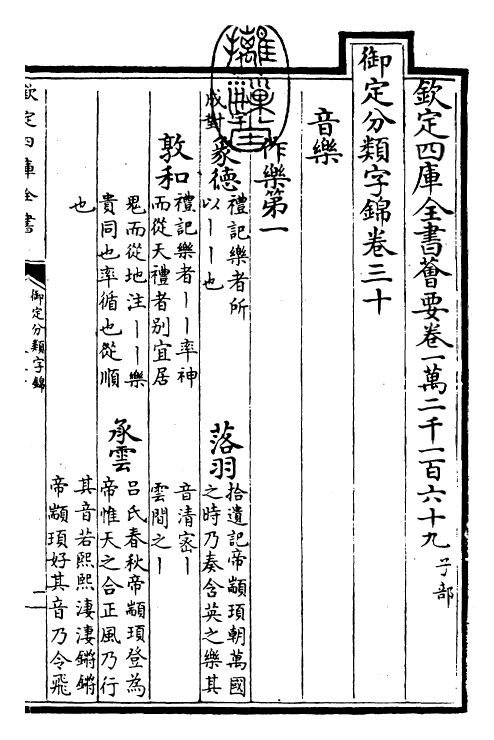 欽定四庫全書薈要卷一萬二千一百六十九 子部
御定分類字錦卷三十
音樂
作樂第一
成對
象德
禮記樂者所
以丨丨也
落羽
拾遺記帝顓頊朝萬國
之時乃奏含英之樂其
音清密丨
雲間之丨
敦和
禮記樂者丨丨率神
而從天禮者别宜居
鬼而從地注丨丨樂
貴同也率循也從順
也
承雲
吕氏春秋帝顓頊登為
帝惟天之合正風乃行
其音若熙熙淒淒鏘鏘
帝顓頊好其音乃令飛
欽定四庫全書
御定分類字錦